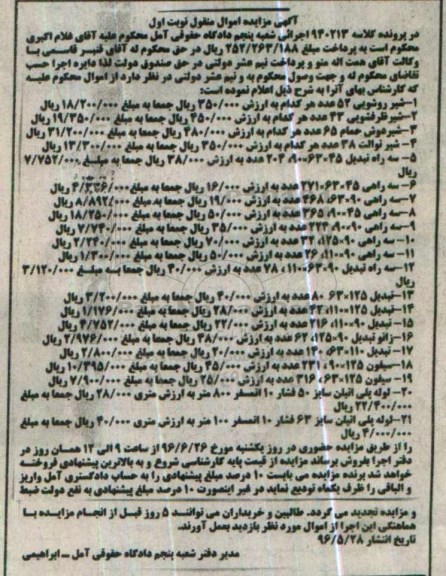 آگهی مزایده اموال منقول نوبت اول
در پرونده کلاسه ۹۴۰۲۱۳ اجرائی شعبه پنجم دادگاه حقوقی آمل محکوم علیه آقای غلام اکبری
محکوم است به پرداخت مبلغ ۲۵۲/۲۶۳/۱۸۸ ریال در حق محکوم له آقای قنبر قاسمی با
وکالت آقای همت اله متو و پرداخت نیم عشر دولتی در حق صندوق دولت لذا دایره اجرا حسب
تقاضای محکوم له و جهت وصول محکوم به و نیم عشر دولتی در نظر دارد از اموال محکوم علیه
که کارشناس بهای آنرا به شرح ذیل اعلام نموده است:
۱-شیر روشویی ۵۲ عدد هر کدام به ارزش ۳۵۰/۰۰۰ ریال جمعا به مبلغ ۱۸/۲۰۰/۰۰۰ ریال
۲-شیر ظرفشویی ۴۳ عدد هر کدام به ارزش ۴۵۰/۰۰۰ ریال جمعا به مبلغ ۱۹/۳۵۰/۰۰۰ ریال
۳-شیر دوش حمام ۶۵ عدد هر کدام به ارزش ۴۸۰/۰۰۰ ریال جمعا به مبلغ ۳۱/۲۰۰/۰۰۰ ریال
۴- شیر توالت ۳۸ عدد هر کدام به ارزش ۳۵۰/۰۰۰ ریال جمعا به مبلغ ۱۳/۳۰۰/۰۰۰ ریال
۵- سه راه تبدیل ۴۵-۶۳-۹۰، ۲۰۴ عدد به ارزش ۳۸/۰۰۰ ریال جمعا به مبلغ ۷/۷۵۲/۰۰۰
ریال
۶- سه راهی ۴۵-۶۳، ۲۷۱ عدد به ارزش ۱۶/۰۰۰ ریال جمعا به مبلغ ۴/۳۳۶/۰۰۰ ریال
۷- سه راهی ۹۰-۶۳، ۴۶۸ عدد به ارزش ۱۹/۰۰۰ ریال جمعا به مبلغ ۸/۸۹۲/۰۰۰ ریال
۸-سه راهی ۴۵-۹۰، ۳۶۵ عدد به ارزش ۵۰/۰۰۰ ریال جمعا به مبلغ ۱۸/۲۵۰/۰۰۰ ریال
۹-سه راهی ۹۰-۹۰، عدد به ارزش ۳۵/۰۰۰ ریال جمعا به مبلغ ۷/۷۴۰/۰۰۰ ریال
۱۰- سه راهی ۹۰-۱۲۵، ۳۲ عدد به ارزش ۷۰/۰۰۰ ریال جمعا به مبلغ ۲/۲۴۰/۰۰۰ ریال
۱۱- سه راهی ۹۰-۱۱۰، ۲۶ عدد به ارزش ۵۰/۰۰۰ ریال جمعا به مبلغ ۱/۳۰۰/۰۰۰ ریال
۱۲-سه راه تبدیل ۹۰-۶۳-۱۱۰، ۷۸ عدد به ارزش ۴۰/۰۰۰ ریال جمعا به مبلغ ۳/۱۲۰/۰۰۰
ریال
۱۳-تبدیل ۱۲۵-۶۳، ۸۰ عدد به ارزش ۴۰/۰۰۰ ریال جمعا به مبلغ ۳/۲۰۰/۰۰۰ ریال
۱۴-تبدیل ۱۲۵-۱۱۰، ۴۲ عدد به ارزش ۲۸/۰۰۰ ریال جمعا به مبلغ ۱/۱۷۶/۰۰۰ ریال
۱۵- تبدیل ۹۰-۱۱۰، ۲۱۶ عدد به ارزش ۲۲/۰۰۰ ریال جمعا به مبلغ ۴/۷۵۲/۰۰۰ ریال
۱۶-زانو تبدیل ۹۰-۱۲۵، ۶۲ عدد به ارزش ۴۸/۰۰۰ ریال جمعا به مبلغ ۲/۹۷۶/۰۰۰ ریال
۱۷- تبدیل ۱۱۰-۶۳، ۱۴۰ عدد به ارزش ۲۰/۰۰۰ ریال جمعا به مبلغ ۲/۸۰۰/۰۰۰ ریال
۱۸-سیفون ۱۲۵-۹۰، ۲۳۱ عدد به ارزش ۴۵/۰۰۰ ریال جمعا به مبلغ ۱۰/۳۹۵/۰۰۰ ریال
۱۹- سیفون ۱۲۵-۶۳، ۳۱۶ عدد به ارزش ۲۵/۰۰۰ ریال جمعا به مبلغ ۷/۹۰۰/۰۰۰ ریال
۲۰- لوله پلی اتیلن سایز ۵۰ فشار ۱۰ اتمسفر ۸۰۰ متر به ارزش متری ۲۸/۰۰۰ ریال جمعا به مبلغ
۲۲/۴۰۰/۰۰۰ ریال
۲۱-لوله پلی اتیلن سایز ۶۳ فشار ۱۰ اتمسفر ۱۰۰ متر به ارزش متری ۴۰/۰۰۰ ریال جمعا به مبلغ
۴/۰۰۰/۰۰۰ ریال
را از طریق مزایده حضوری در روز یکشنبه مورخ ۹۶/۶/۲۶ از ساعت ۹ الی ۱۲ همان روز در
دفتر اجرا بفروش برساند مزایده از قیمت پایه کارشناسی شروع و به بالاترین پیشنهادی فروخته
خواهد شد برنده مزایده می بایست ۱۰ درصد مبلغ پیشنهادی را به حساب دادگستری آمل واریز
و الباقی را ظرف یکماه تودیع نماید در غیر اینصورت ۱۰ درصد مبلغ پیشنهادی به نفع دولت ضبط
و مزایده تجدید می گردد. طالبین و خریداران می توانند ۵ روز قبل از انجام مزایده با
هماهنگی این اجرا از اموال مورد نظر بازدید بعمل آورند.
تاریخ انتشار ۹۶/۵/۲۸
مدیر دفتر شعبه پنجم دادگاه حقوقی آمل – ابراهیمی